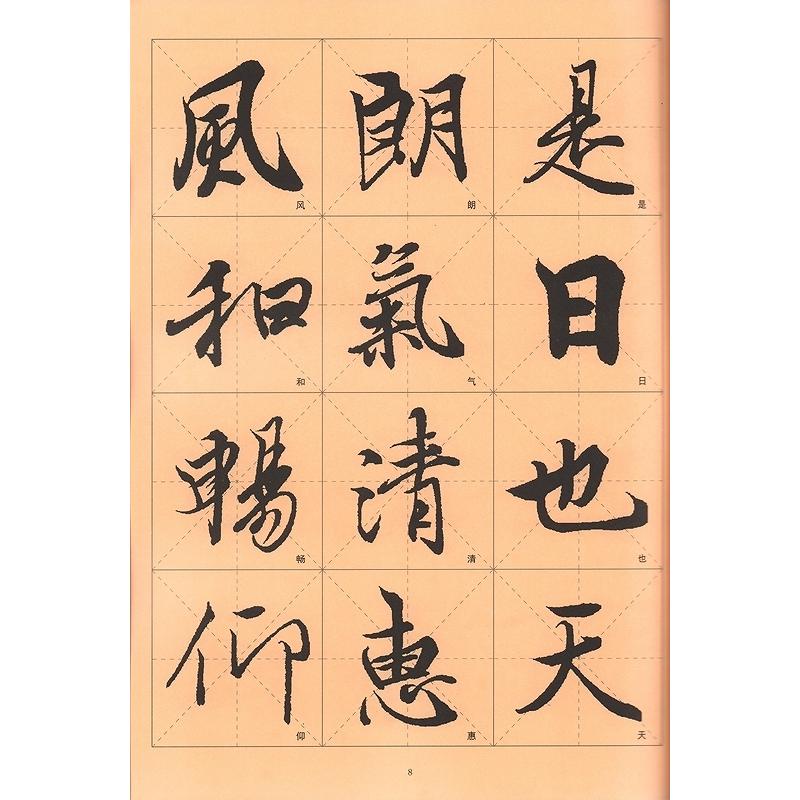 是日也天
朗氣清惠
風和暢仰
是
日
也
天
朗
气
清
惠
风
和
畅
仰
8